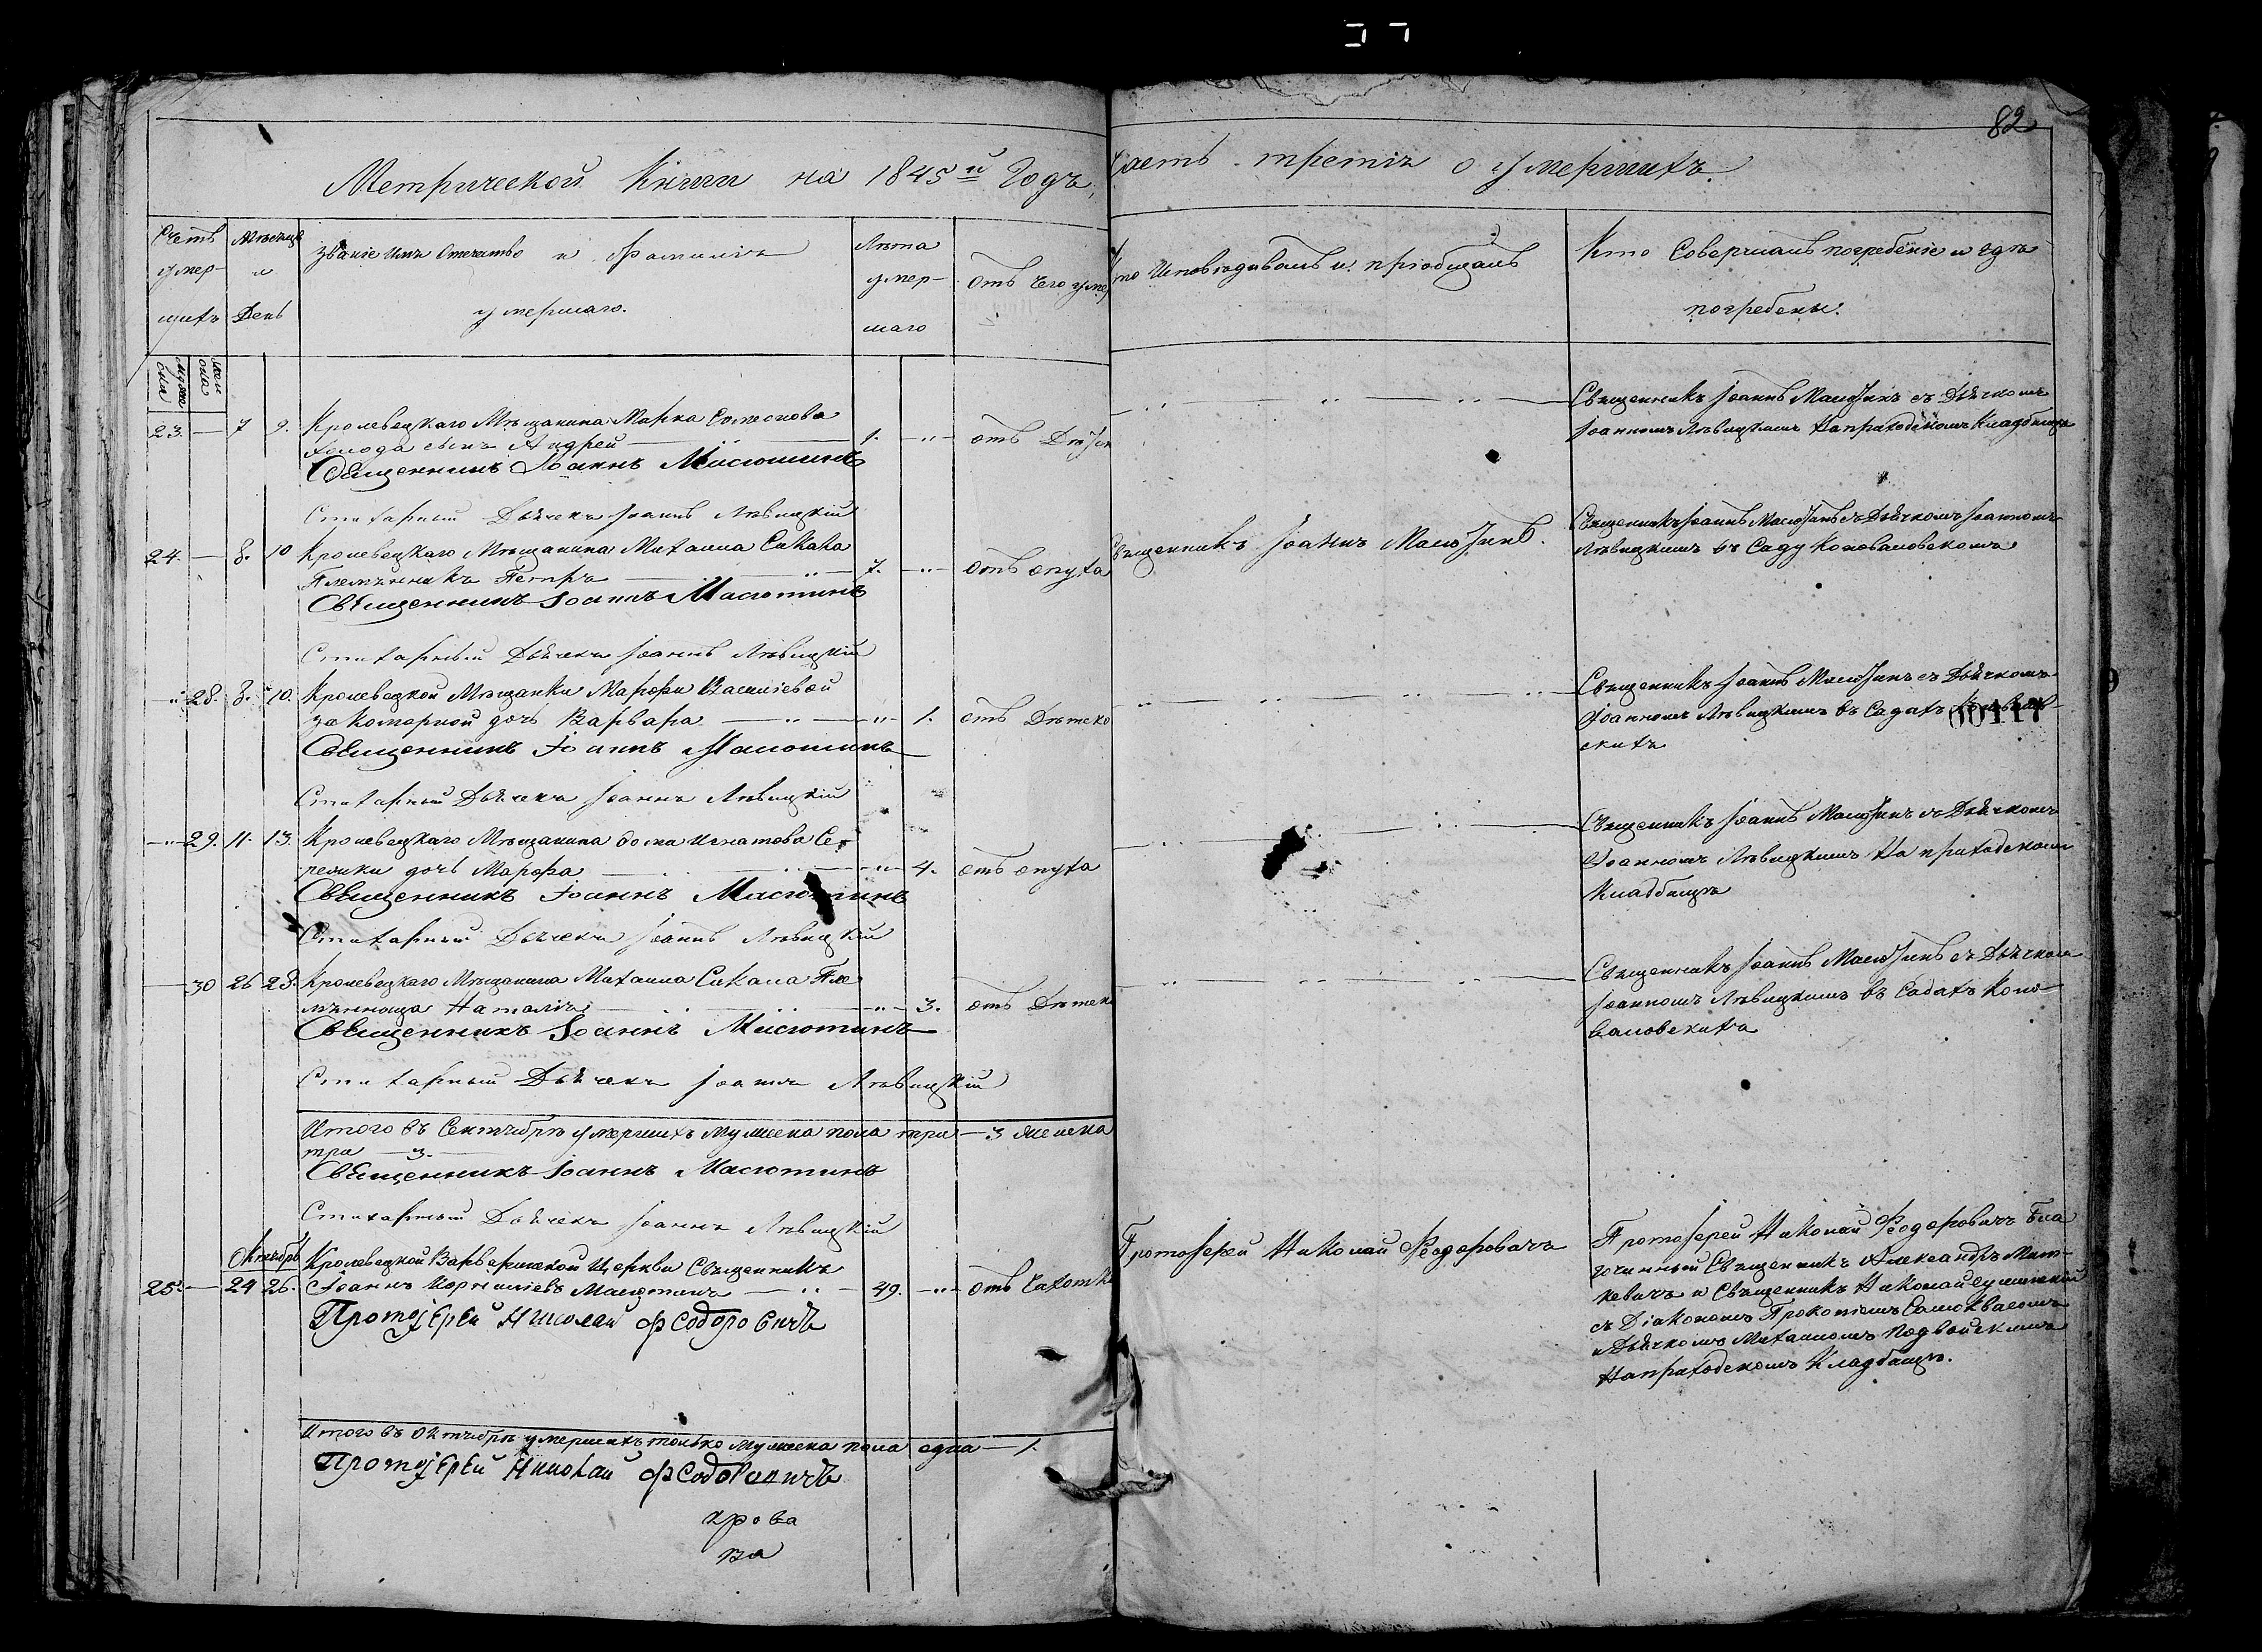 82
Метрической Книги на 1845й Годъ,
Часть третія о умершихъ.
Счетъ умер- шихъ
Мѣсяцъ и День
Званіе Имя Отечество и Фамилія
умершаго.
Лѣта умер- шаго
Отъ чего умер
Кто Исповѣдывалъ и пріобщалъ
Кто Совершалъ погребеніе и гдѣ
погребены.
23. — 7 9. Кролевецкаго Мѣщанина Марка
Холода сынъ Андрей — 1. — отъ
Священникъ Іоаннъ Масютинъ
Стихарный Дьячекъ Іоаннъ Лѣвицкій
Священникъ Іоаннъ Масютинъ съ Дьячкомъ
Іоанномъ Лѣвицкимъ На приходскомъ Кладбищѣ
24. — 8. 10 Кролевецкаго Мѣщанина Михаила
Племянникъ Петръ — 7. — отъ опуха
Священникъ Іоаннъ Масютинъ
Стихарный Дьячекъ Іоаннъ Лѣвицкій
Священникъ Іоаннъ Масютинъ.
Священникъ Іоаннъ Масютинъ съ Дьячкомъ Іоанномъ
Лѣвицкимъ въ Саду Коноваловскомъ
28. 8. 10. Кролевецкой Мѣщанки Марфы Василіевой
Закоморной дочь Варвара — 1. отъ Дѣтско
Священникъ Іоаннъ Масютинъ
Стихарный Дьячекъ Іоаннъ Лѣвицкій
Священникъ Іоаннъ Масютинъ съ Дьячкомъ
Іоанномъ Лѣвицкимъ въ Садахъ
скихъ
00117
29. 11. 13. Кролевецкаго Мѣщанина Фомы Игнатова
дочь Марфа — 4. отъ опуха
Священникъ Іоаннъ Масютинъ
Стихарный Дьячекъ Іоаннъ Лѣвицкій
Священникъ Іоаннъ Масютинъ съ Дьячкомъ
Іоанномъ Лѣвицкимъ На приходскомъ
Кладбищѣ
30 26 28. Кролевецкаго Мѣщанина Михаила Сикала Пле
мянница Наталія — 3. отъ Дѣтско
Священникъ Іоаннъ Масютинъ
Стихарный Дьячекъ Іоаннъ Лѣвицкій
Священникъ Іоаннъ Масютинъ съ Дьячкомъ
Іоанномъ Лѣвицкимъ въ Садахъ Коно-
валовскихъ
Итого въ Сентябрѣ умершихъ мужеска пола три — 3 женска
три — 3.
Священникъ Іоаннъ Масютинъ
Стихарный Дьячекъ Іоаннъ Лѣвицкій
Октябрь
25. — 24 26. Кролевецкой Варваринской Церкви Священникъ
Іоаннъ Корниліевъ Масютинъ — 49. — отъ Чахотки
Протоіерей Николай Феодоровичъ
Протоіерей Николай Феодоровичъ
Протоіерей Николай Феодоровичъ Бла
гочинный Священникъ Александръ Мит-
кевичъ и Священникъ Николай
съ Діакономъ Прокопіемъ Самоквасомъ
и Дьячкомъ Михаиломъ Подвойскимъ
На приходскомъ Кладбищѣ.
Итого въ Октябрѣ умершихъ только мужеска пола одна — 1.
Протоіерей Николай Феодоровичъ